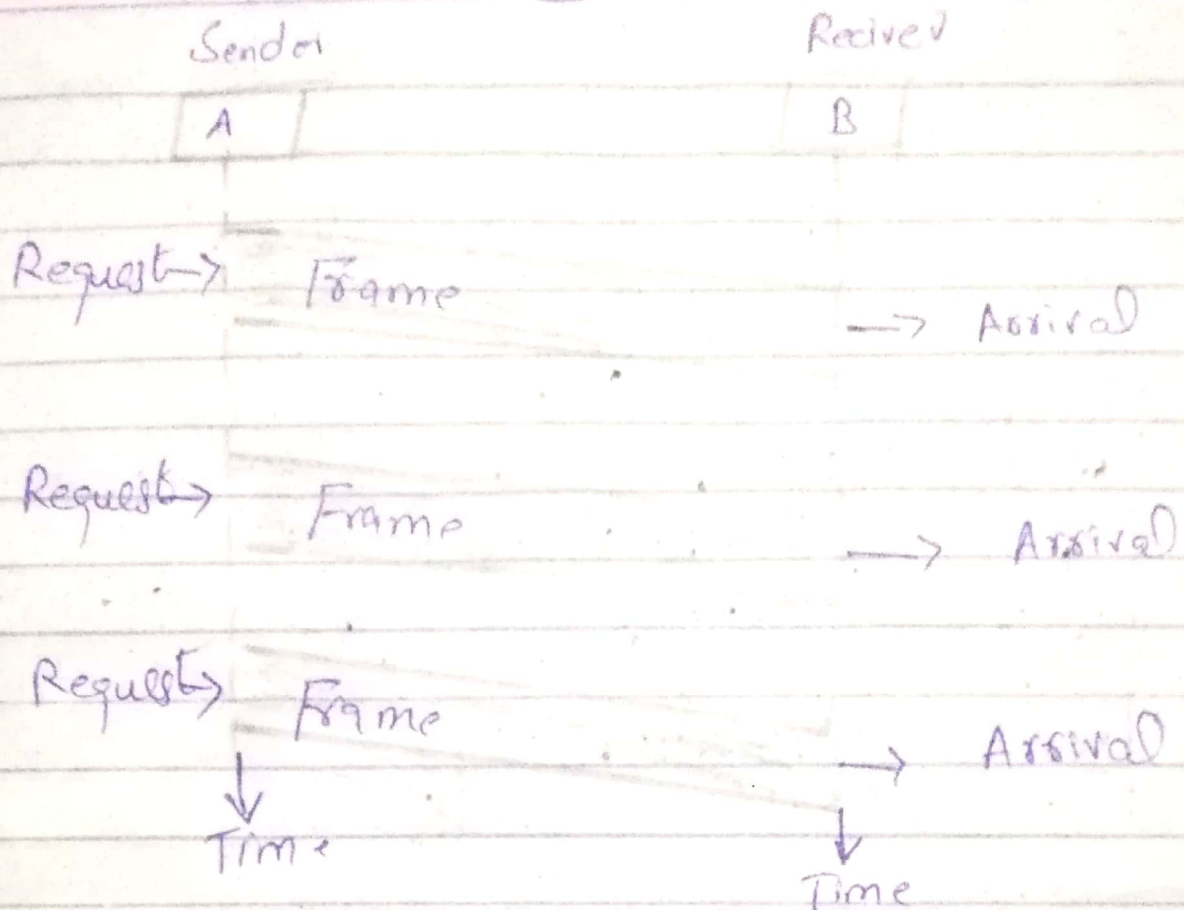 Sender Reciver
A B
Request→ Frame → Arrival
Request→ Frame → Arrival
Request→ Frame → Arrival
Time
Time